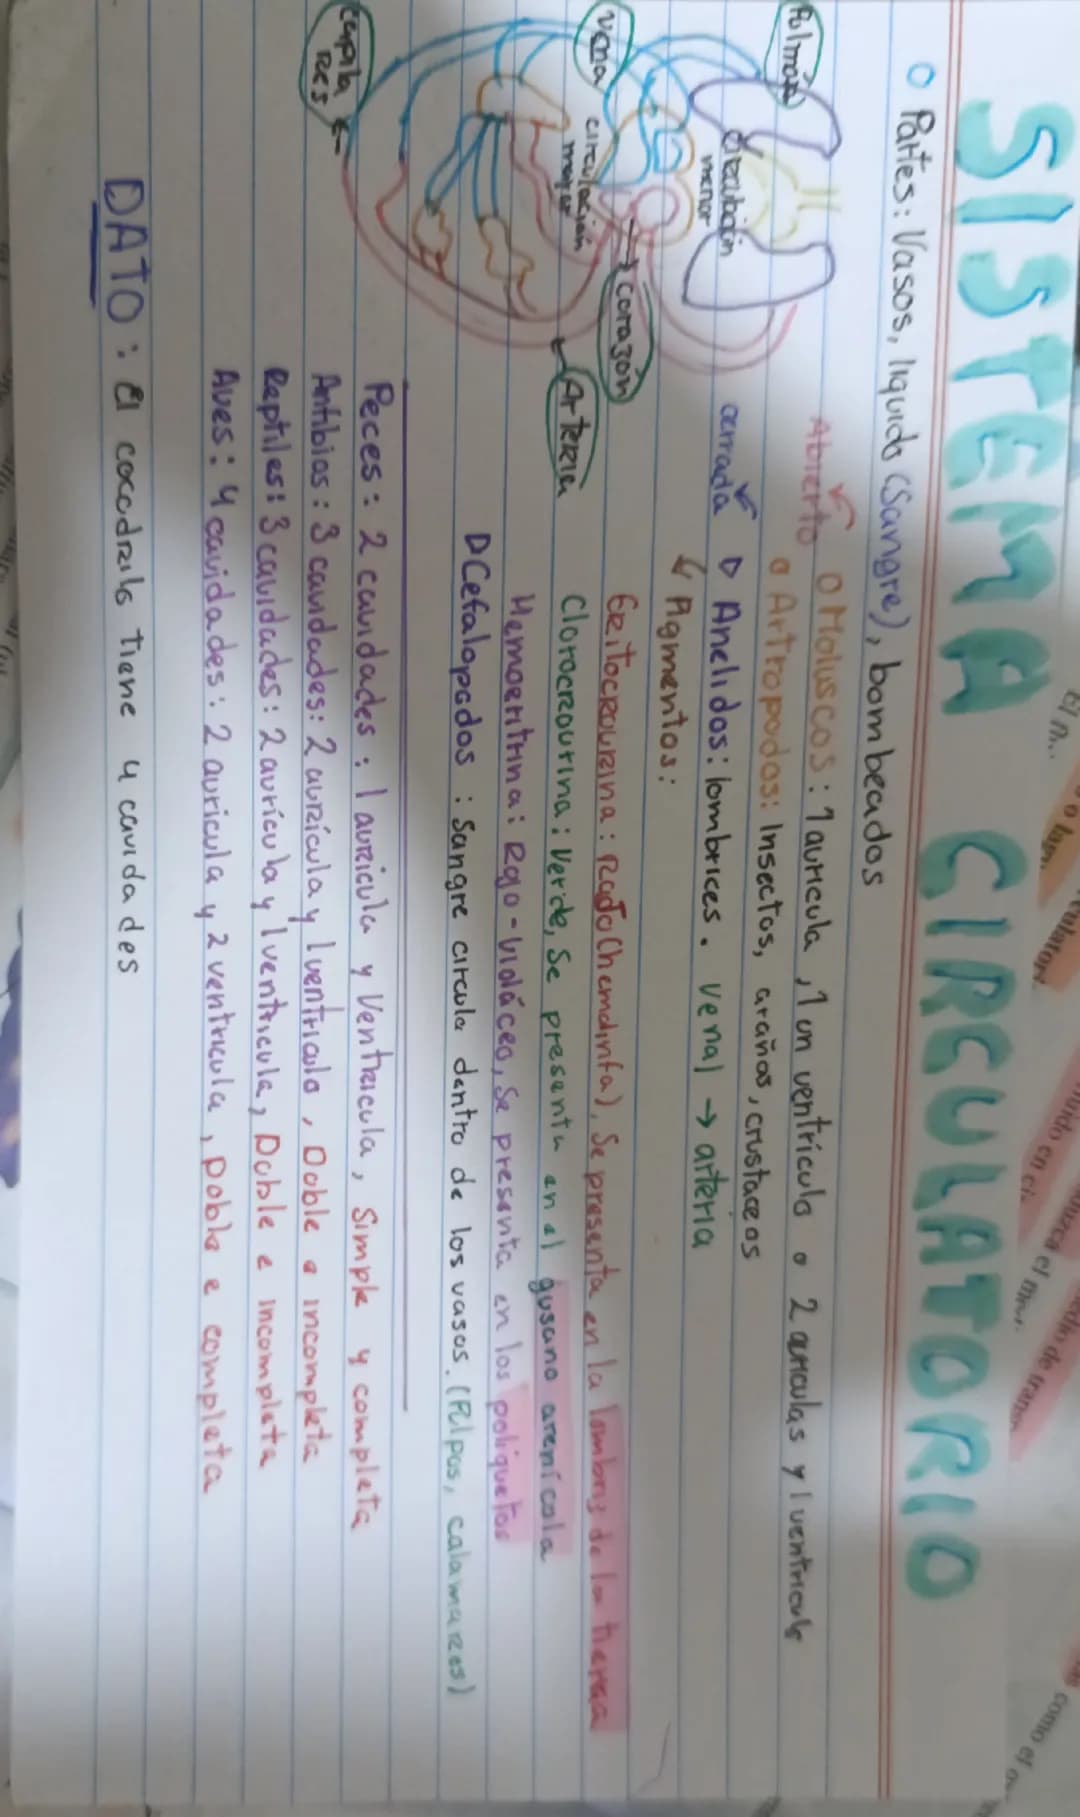 SISTEMA CIRCULATORIO
o Partes: Vasos, liquido (Sangre), bombeados
Abierto
o Moluscos: 1 auricula, 1 un ventriculo o 2 auriculas y 1 ventriculo
o Artropodos: Insectos, arañas, crustaceos
cerrada
▷ Anelidos: lombrices. Venal → arteria
↳ Pigmentos:
Eritocrourina: Rojo (hemolinfa), Se presenta en la lombriz de la tierra
Clorocrourina: Verde, Se presenta en el gusano arenícola
Hemoeritrina: Rojo-violáceo, Se presenta en los poliquetos
▷ Cefalopodos: Sangre circula dentro de los vasos. (Pulpos, calamares)
Pulmón
circulación menor
vena
circulación mayor
→ corazón
← Arteria
capilares ←
Peces: 2 cavidades: 1 auricula y Ventricula, Simple y completa
Anfibios: 3 cavidades: 2 aurícula y 1 ventriculo, Doble e incompleta
Reptiles: 3 cavidades: 2 aurícula y 1 ventricula, Doble e incompleta
Aves: 4 cavidades: 2 auricula y 2 ventricula, Doble e completa
DATO: El cocodrilo tiene 4 cavidades